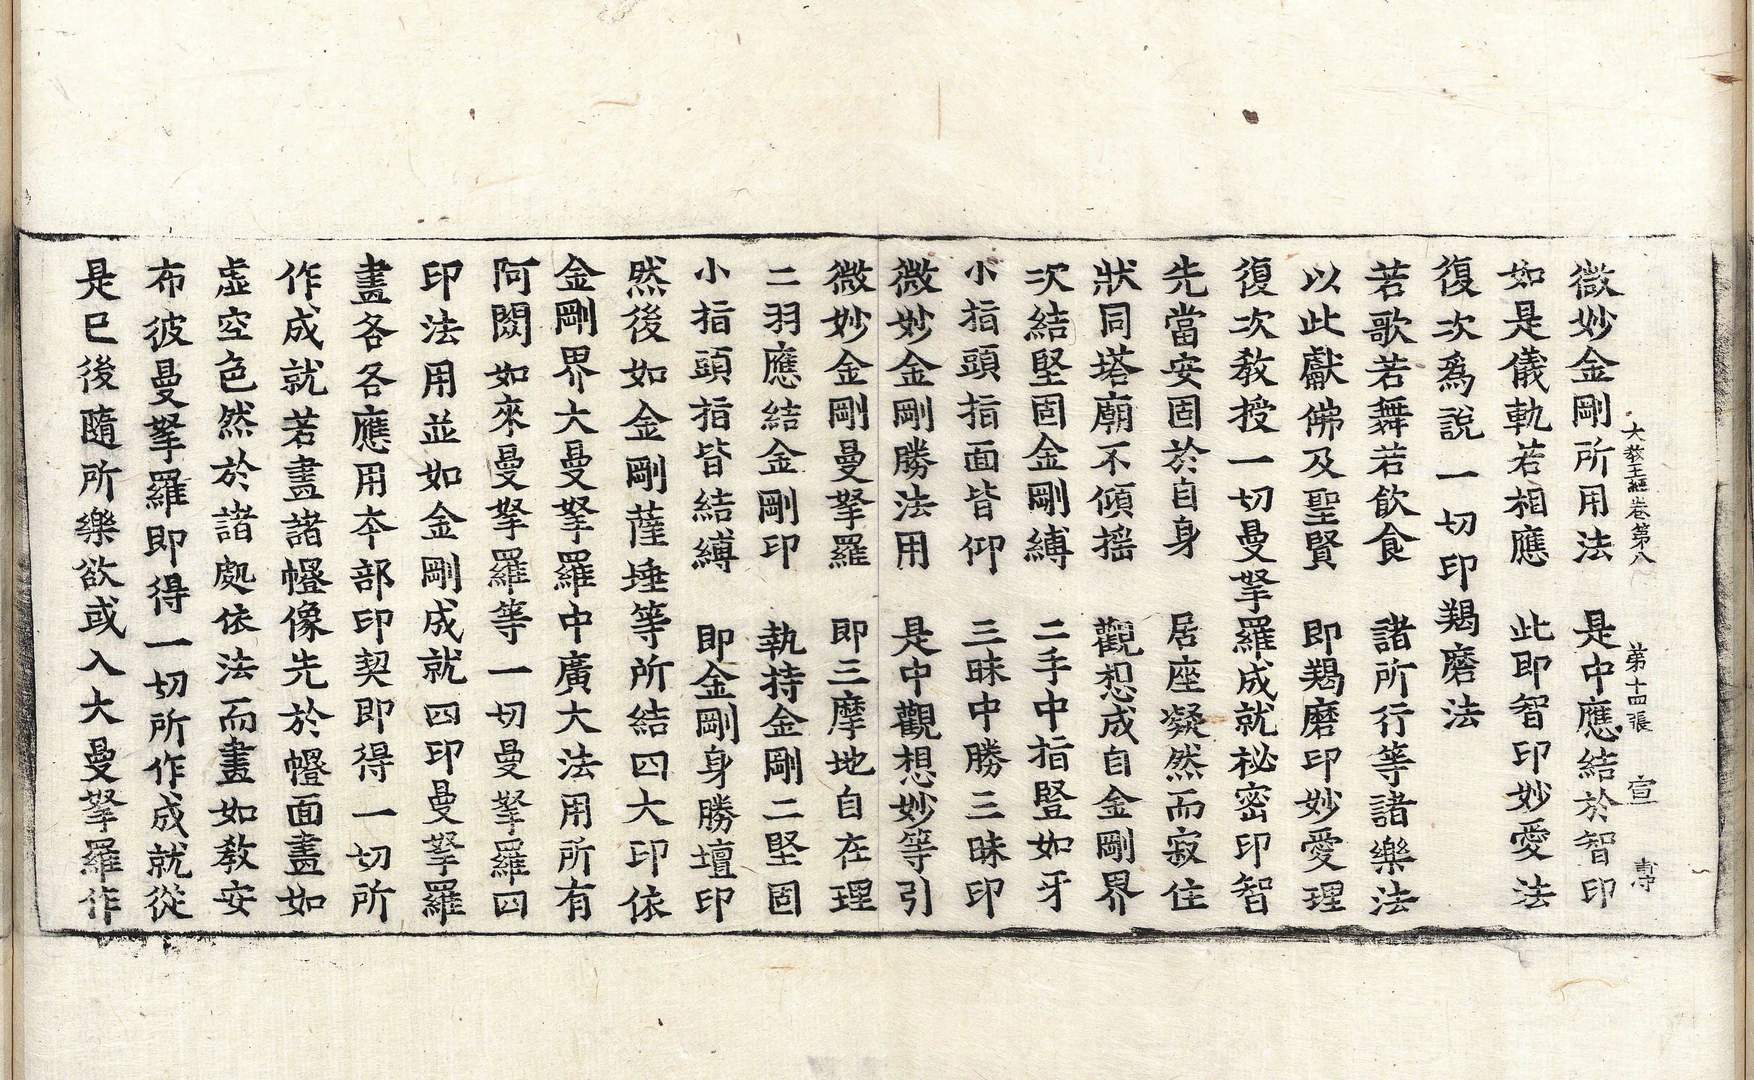 大教王經卷第八　第十四張　宣
微妙金剛所用法　是中應結於智印
如是儀軌若相應　此即智印妙愛法
復次爲說一切印羯磨法
若歌若舞若飲食　諸所行等諸樂法
以此獻佛及聖賢　即羯磨印妙愛理
復次教授一切曼拏羅成就祕密印智
先當安固於自身　居座凝然而寂住
狀同塔廟不傾摇　觀想成自金剛界
次結堅固金剛縛　二手中指豎如牙
小指頭指面皆仰　三昧中勝三昧印
微妙金剛勝法用　是中觀想妙等引
微妙金剛曼拏羅　即三摩地自在理
二羽應結金剛印　執持金剛二堅固
小指頭指皆結縛　即金剛身勝壇印
然後如金剛薩埵等所結四大印依
金剛界大曼拏羅中廣大法用所有
阿閦如來曼拏羅等一切曼拏羅四
印法用並如金剛成就四印曼拏羅
畫各各應用本部印契即得一切所
作成就若畫諸㡧像先於㡧面畫如
虛空色然於諸處依法而畫如教安
布彼曼拏羅即得一切所作成就從
是已後隨所樂欲或入大曼拏羅作